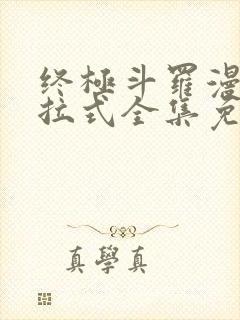 终極斗羅漫
拉式全集免
真學真